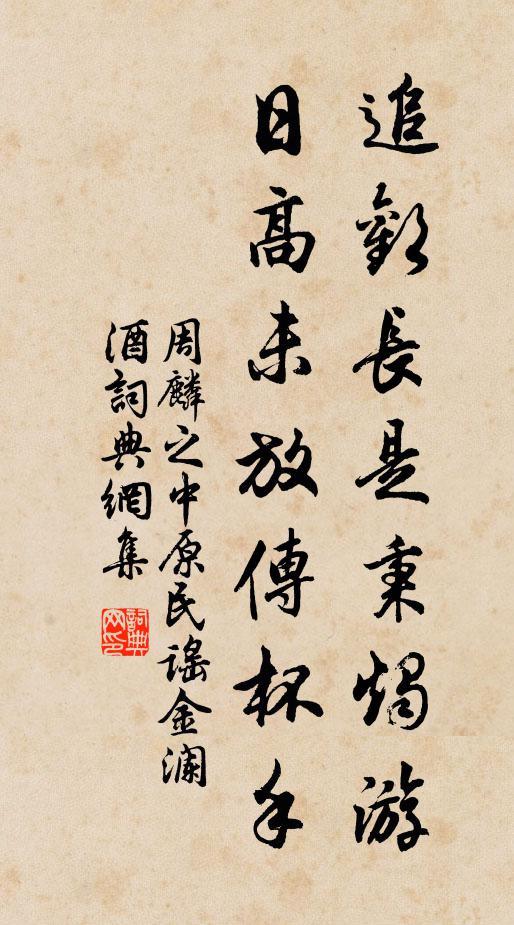 追歡長是秉燭游
日高未放傳杯手
周麟之中原民謠金瀾
酒詞典網集
詞典網印